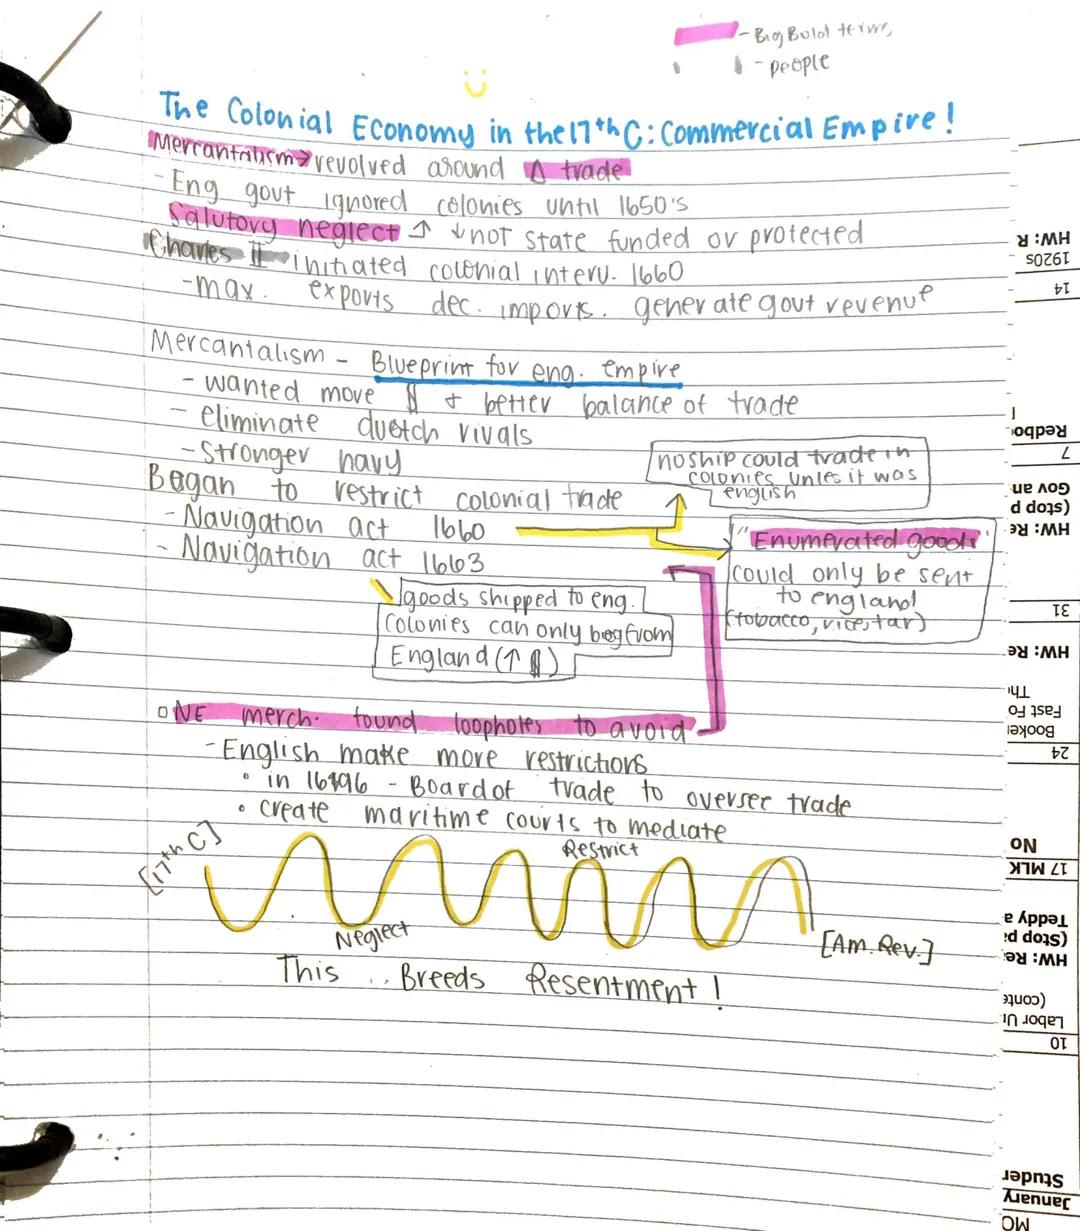 - Big Bold terms
- people
The Colonial Economy in the 17th C: Commercial Empire!
Mercantalism → revolved around Δ trade
- Eng govt ignored colonies until 1650's
Salutory neglect ↑ ↓ not state funded or protected
Charles II initiated colonial interv. 1660
- max. exports dec. imports. generate govt revenue
Mercantalism - Blueprint for eng. empire
- wanted more $ + better balance of trade
- eliminate duetch rivals
- Stronger navy
Began to restrict colonial trade
no ship could trade in
colonies unles it was
english
- Navigation act 1660
"Enumerated goods"
could only be sent
to england
(tobacco, rice, tar)
- Navigation act 1663
goods shipped to eng.
colonies can only be from
England (↑ $)
NE merch. found loopholes to avoid
- English make more restrictions
• in 1696 - Board of trade to oversee trade
• create maritime courts to mediate
[17th C]
Restrict
Neglect
[Am. Rev.]
This .. Breeds Resentment!
HW: R
1920s
14
Redboo
7
Gov an
(stop p
HW: Re
31
HW: Re
Th
Fast Fo
Booker
24
No
17 MLK
Teddy a
(Stop pa
HW: Rea
(conte
Labor Un
10
Studer
January
MC